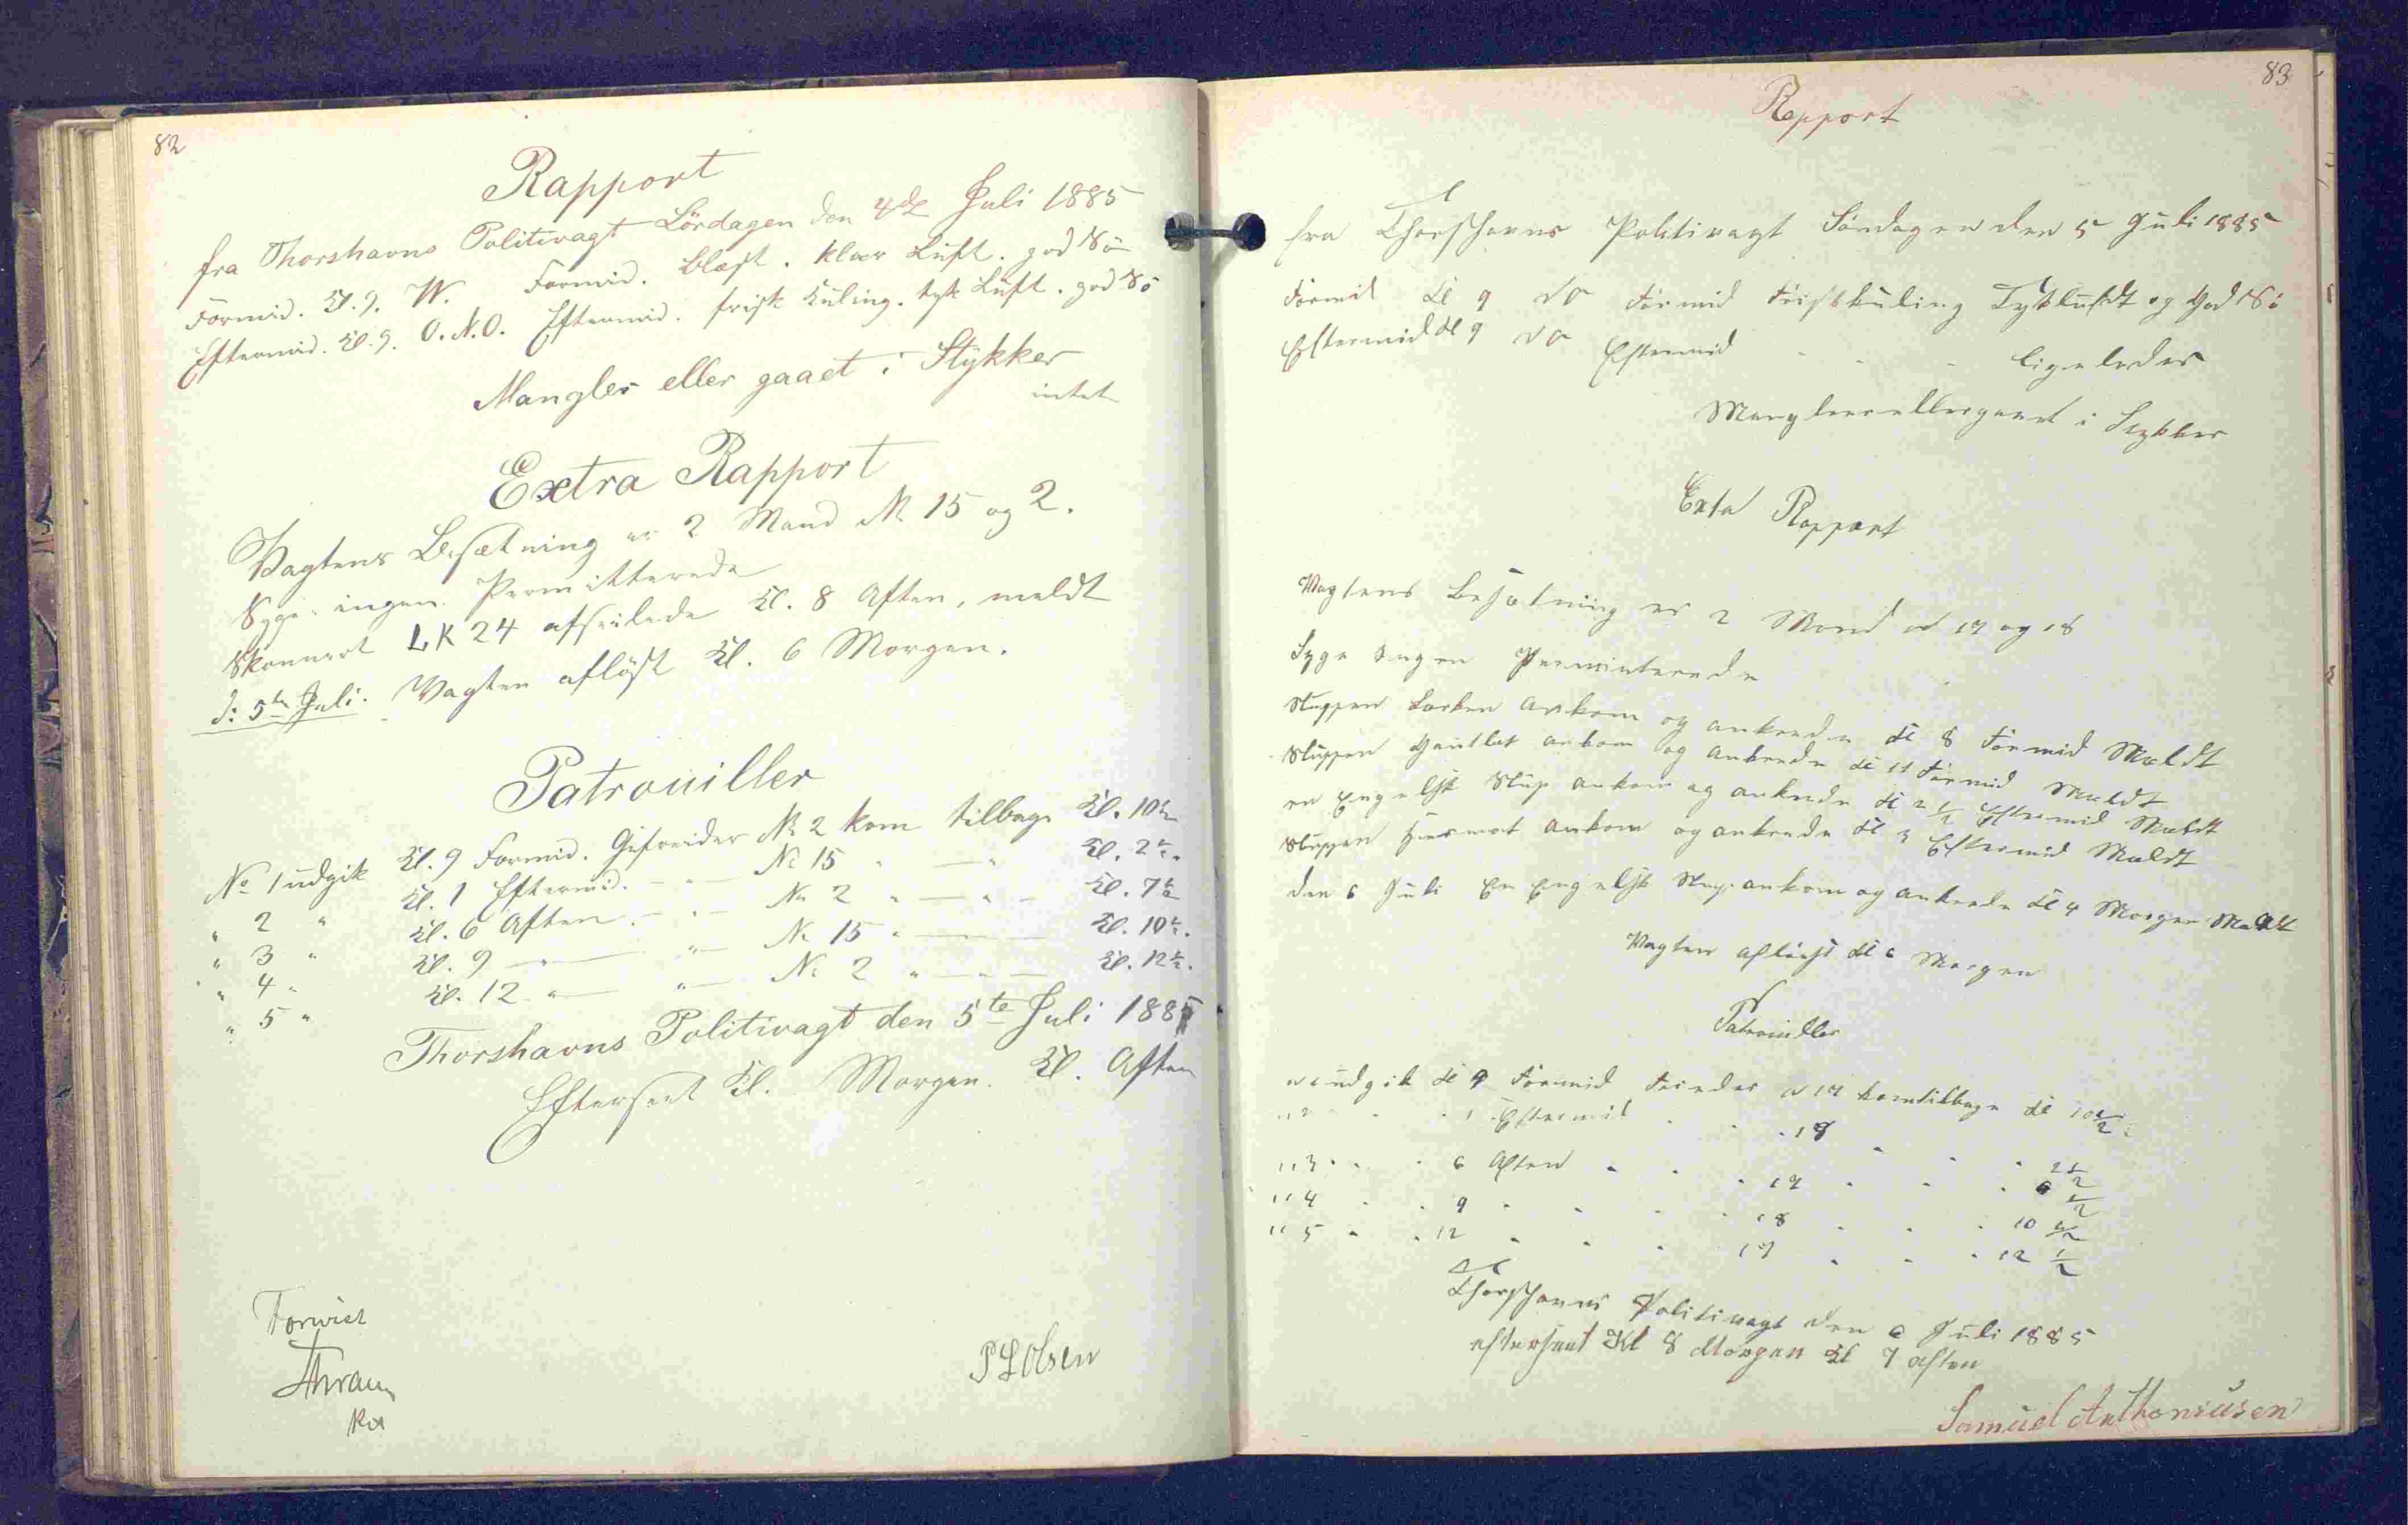 82
Rapport
fra Thorshavns Politivagt Lördagen den 4de Juli 1885
Formid. Kl. 9. W. Formid. blæst. klar Luft. god Sö
Eftermid. Kl. 9. O.N.O. Eftermid. frisk Kuling. tyk Luft. god Sö
Mangler eller gaaet i Stykker
intet
Extra Rapport
Vagtens Besætning er 2 Mand № 15 og 2.
Syge: ingen. Permitterede
Skonnert LK 24 afseilede Kl. 8 Aften, meldt
d: 5te Juli. Vagten aflöst Kl. 6 Morgen.
Patrouiller
No 1 udgik Kl. 9 Formid. Gefreider № 2 kom tilbage Kl. 10½
" 2 " Kl. 1 Eftermid. — " — № 15 " — " Kl. 2½.
" 3 " Kl. 6 Aften. — " — № 2 " — " — Kl. 7½
" 4 " Kl. 9 — " — " — № 15 " — Kl. 10½.
" 5 " Kl. 12 " — " — № 2 " — " — Kl. 12½.
Thorshavns Politivagt den 5te Juli 1885
Efterseet Kl. Morgen. Kl. Aften
Forvist
P L Olsen
83
Rapport
fra Thorshavns Politivagt Söndagen den 5 Juli 1885
Formid Kl 9 NO Formid Friskkuling Tykluft og God Sö
Eftermid Kl 9 NO Eftermid " " ligeledes
Manglereller gaaet i Stykker
Exta Rapport
Vagtens Besætning er 2 Mand № 17 og 18
Syge Ingen Perminterede
Sluppen Larken ankom og ankrede Kl 8 Formid Meldt
Sluppen ankom og ankrede Kl 11 Formid Meldt
en Engelsk Slup ankom og ankrede Kl 2½ Eftermid Meldt
Sluppen ankom og ankrede Kl 3 Eftermid Meldt
den 6 Juli En Engelsk Slup ankom og ankrede Kl 4 Morgen Meldt
Vagten aflöist Kl 6 Morgen
Patrouiller
№ 1 udgik Kl 9 Formid Freider № 17 komtilbage Kl 10½
" 2 " " " 1 Eftermid " " " 18 " " " 2½
" 3 " " " 6 Aften " " " 17 " " " 6½
" 4 " " 9 " " " " 18 " " " 10½
" 5 " " 12 " " " 17 " " " 12½
Thorshavns Politivagt den 6 Juli 1885
efterseet Kl 8 Morgen Kl 7 aften
Samuel Anthoniusen